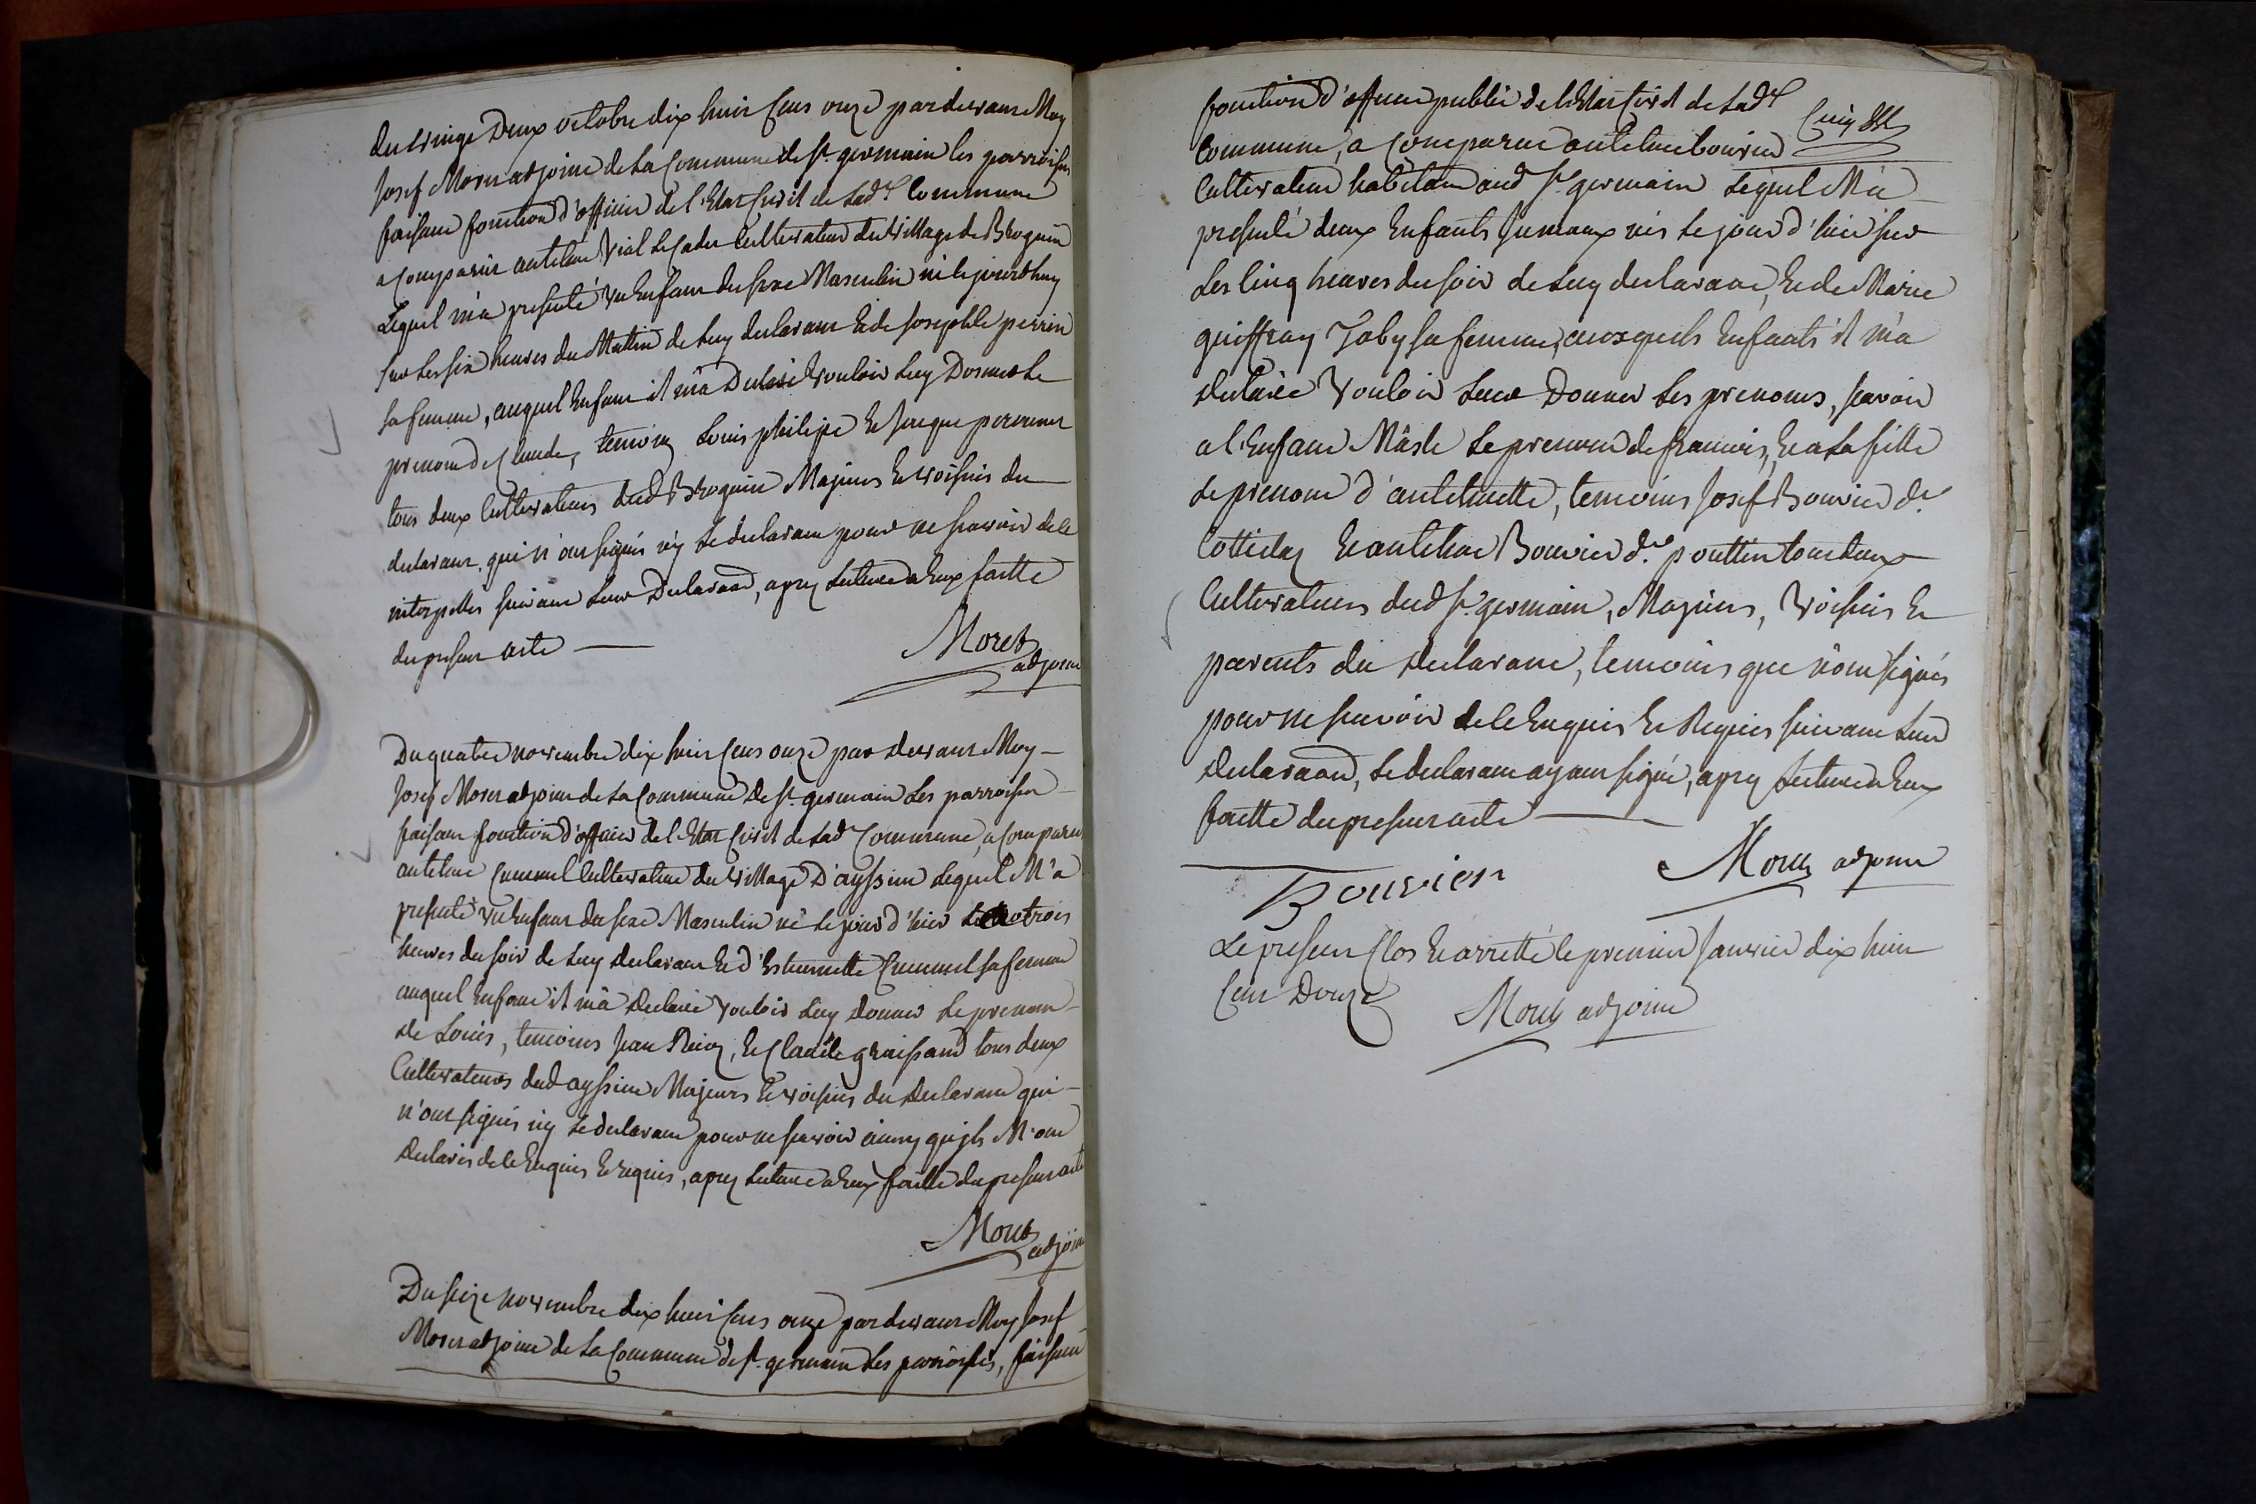 du vingt Deux octobre dix huit Cens onze pardevant Moy
Josef Moret adjoint de la Commune de st. germain les parroisses
faisant fonction d'officier de l'Etat Civil de lad.e Commune
a Comparut antelme Vial Le Cadet Cultivateur du village de Brognin
Lequel m'a presenté un Enfant du sexe Masculin né le jourdhuy
sur les six heures du Mattin de luy declarant et de Josephte perrin
sa femme, auquel Enfant il m'a Declaré vouloir luy Donner le
prenom de Claude, temoins Louis philipe et Jacque
tous deux Cultivateurs dud Brognin Majeurs et voisins du
declarant, qui n'ont signés n'y le declarant pour ne scavoir de le
interpellés suivant leur Declaraon, apres lecture a Eux faitte
du present acte
Moret
adjoint
Du quatre novembre dix huit Cens onze par devant Moy
Josef Moret adjoint de la Commune de st. germain Les parroisses
faisant fonction d'officier de l'Etat Civil de lad.e Commune, a Comparu
antelme Cultivateur du village D'ayssieu Lequel M'a
presenté un Enfant du sexe Masculin né le jour d'hier trois
heures du soir de luy declarant et d'Estiennette sa femme
auquel Enfant il m'a declaré vouloir luy donner le prenom
de Louis, temoins Jean et Claude tous deux
Cultivateurs dud ayssieu Majeurs et voisins du declarant qui
n'ont signés n'y le declarant pour ne scavoir ainsy qu'jls M'ont
declarés de le Enquis et requis, apres lecture a Eux faitte du present acte
Moret
adjoint
Du seize novembre dix huit Cens onze pardevant Moy Josef
Moret adjoint de la Commune de st. germain Les parroisses, faisant
fonction d'officier public de l'Etat Civil de lad.e
Commune, a Comparut antelme bouvier
Cultivateur habitant aud st. germain Lequel M'a
presenté deux Enfants Jumeaux nés le jour d'hier sur
les Cinq heures du soir de luy declarant, et de Marie
guiffray Joly sa femme, auxquels Enfants il m'a
declaré vouloir leur Donner les prenoms, scavoir
a l'Enfant Mâsle le prenom de francois, et a la fille
le prenom d'antelmette, temoins Josef Bouvier d.t
et antelme Bouvier d.t tous deux
Cultivateurs dud st. germain, Majeurs, voisins et
parents du declarant, temoins que n'ont signés
pour ne scavoir de le Enquis et Requis suivant leur
declaraon, le declarant ayant signé, apres lecture a Eux
faitte du present acte
Bouvier
Moret adjoint
Le present Clos et arretté le premier Janvier dix huit
Cent Douze
Moret adjoint